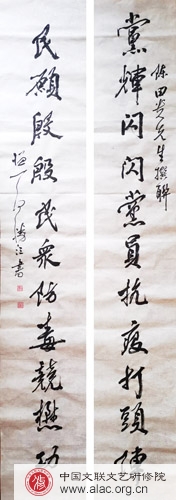 陈田贵先生撰聯
黨輝閃閃黨員抗疫打頭陣
民願殷殷民衆防毒競懋功
書
中国文联文艺研修院
www.alac.org.cn